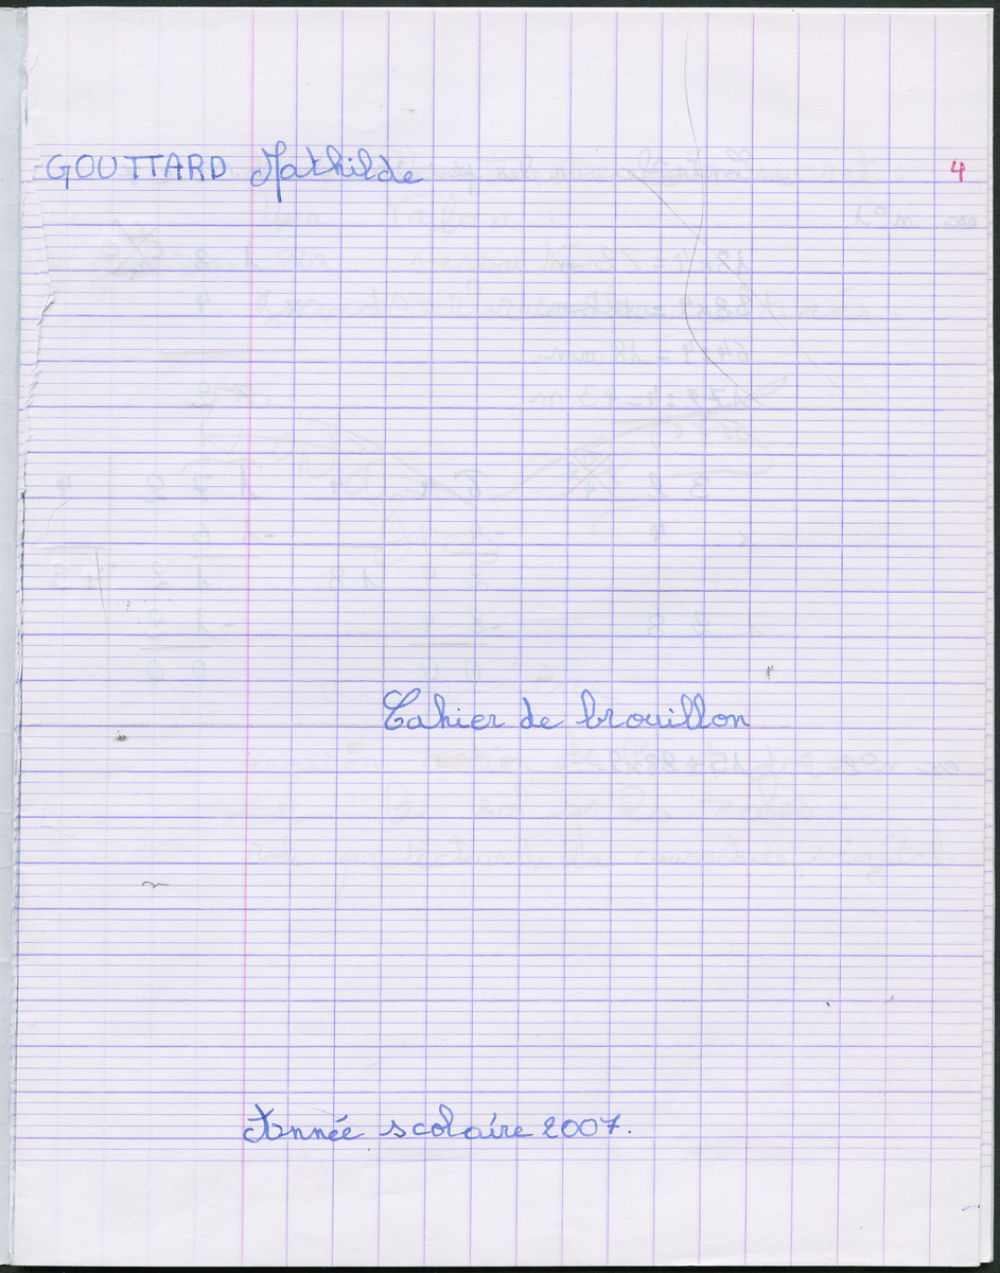 GOUTTARD Mathilde 4
Cahier de brouillon
Année scolaire 2007.